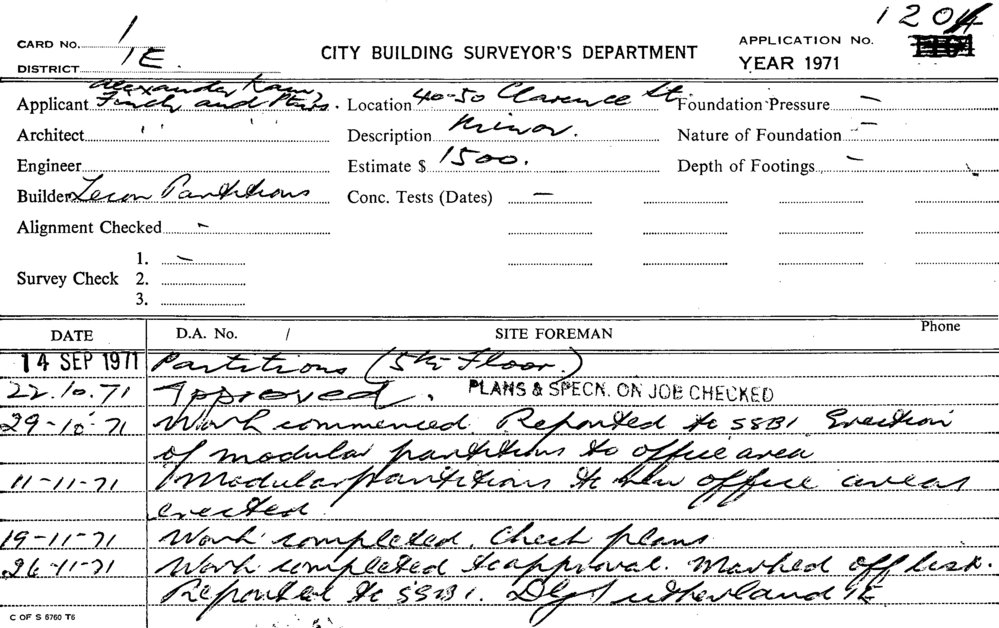 1204
CARD No. 1
DISTRICT 1E.
CITY BUILDING SURVEYOR'S DEPARTMENT
APPLICATION No.
YEAR 1971
Applicant Alexander Kann Finch and Ptnrs. Location 40-50 Clarence St. Foundation Pressure –
Architect " " Description Minor. Nature of Foundation –
Engineer Estimate $ 1500. Depth of Footings –
Builder Partitions Conc. Tests (Dates) –
Alignment Checked –
Survey Check 1. –
2.
3.
DATE D.A. No. / SITE FOREMAN Phone
14 SEP 1971 Partitions (5th Floor.)
22.10.71 Approved. PLANS & SPECN. ON JOB CHECKED
29-10-71 Work commenced. Reported to SSB1 Erection
of modular partitions to office area
11-11-71 Modular partitions to new office areas
erected.
19-11-71 Work completed. Check plans
26-11-71 Work completed to approval. Marked off list.
Reported to SSB1. Sutherland 1E
C OF S 6760 T6